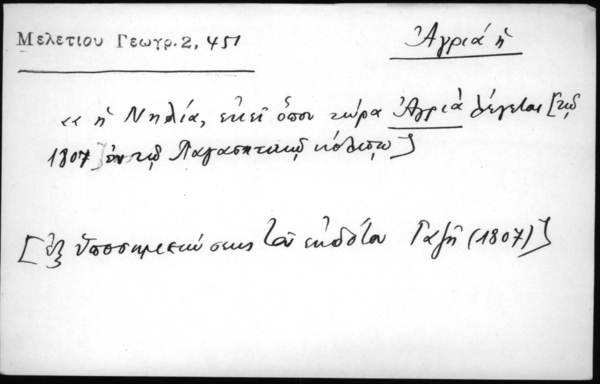 Μελετίου Γεωγρ. 2, 451
Ἀγριά ἡ
«ἡ Νηλία, ἐκεῖ ὅπου τώρα Ἀγριὰ λέγεται [τῷ
1807] ἐν τῷ Παγασητικῷ κόλπῳ]
[ἐξ ὑποσημειώσεως τοῦ ἐκδότου Γαζῆ (1807)]